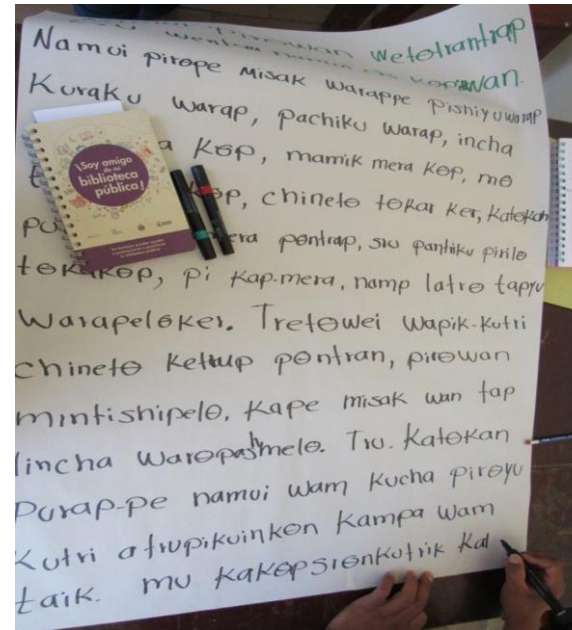 pirowan wetotrantrap
Namui pirope misak warappe pishiyu warap
Kuraku warap, pachiku warap, incha
a Kɵp, mamik mera Kɵp, mɵ
Kɵp, chinetɵ tɵkar ker, Katɵkan
mera pɵntrap, srɵ panhiku pirilɵ
tɵkakɵp, pi Kap-mera, namp latrɵ tapyu
Warapelɵker. Tretɵwei wapik-kutri
chinetɵ Ketrup pɵntran, pirɵwan
mintishipelɵ. Kape misak wan tap
lincha warɵpashmelɵ. Tru. Katɵkan
Purap-pe namui wam Kucha pirɵyu
Kutri atrupikuinkɵn Kampa wam
taik. mu KakɵpsrɵnKutrik Kal
¡Soy amigo
de mi
biblioteca
pública!